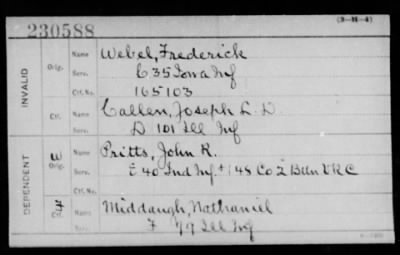 (3-H-4)
230588
INVALID
Orig.
Name Webel, Frederick
Serv. C 35 Iowa Inf
Ctf. No. 165103
Ctf.
Name Callen, Joseph L. D.
Serv. D 101 Ill Inf
DEPENDENT
W Orig.
Name Pritts, John R.
Serv. E 40 Ind Inf + 148 Co 2 Batn V R C
Ctf. No.
Ctf.
Name Middaugh, Nathaniel
Serv. F 77 Ill Inf